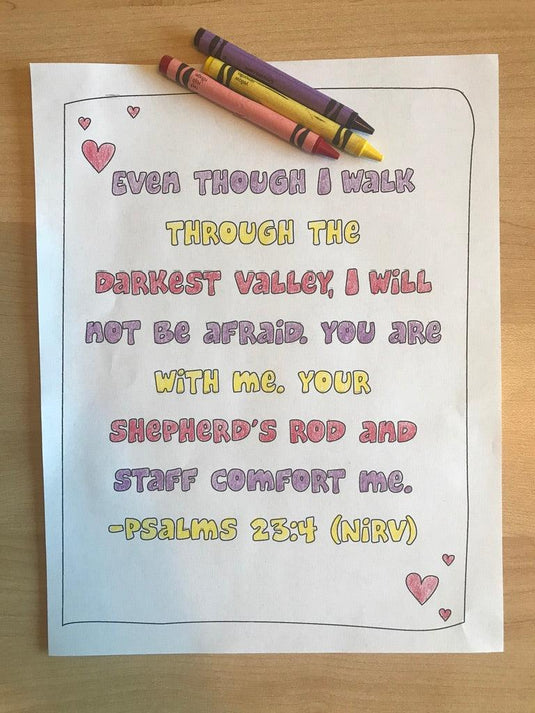 Even though I walk
through the
darkest valley, I will
not be afraid. You are
with me. Your
shepherd's rod and
staff comfort me.
-Psalms 23:4 (NIRV)